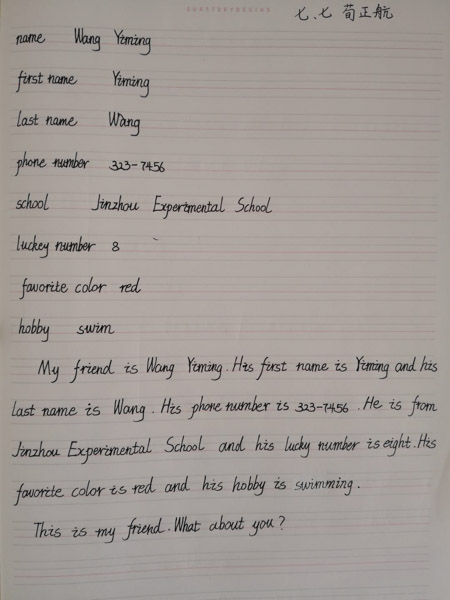 七.七 荀正航
name Wang Yiming
first name Yiming
last name Wang
phone number 323-7456
school Jinzhou Experimental School
luckey number 8
favorite color red
hobby swim
My friend is Wang Yiming. His first name is Yiming and his
last name is Wang. His phone number is 323-7456. He is from
Jinzhou Experimental School and his lucky number is eight. His
favorite color is red and his hobby is swimming.
This is my friend. What about you?